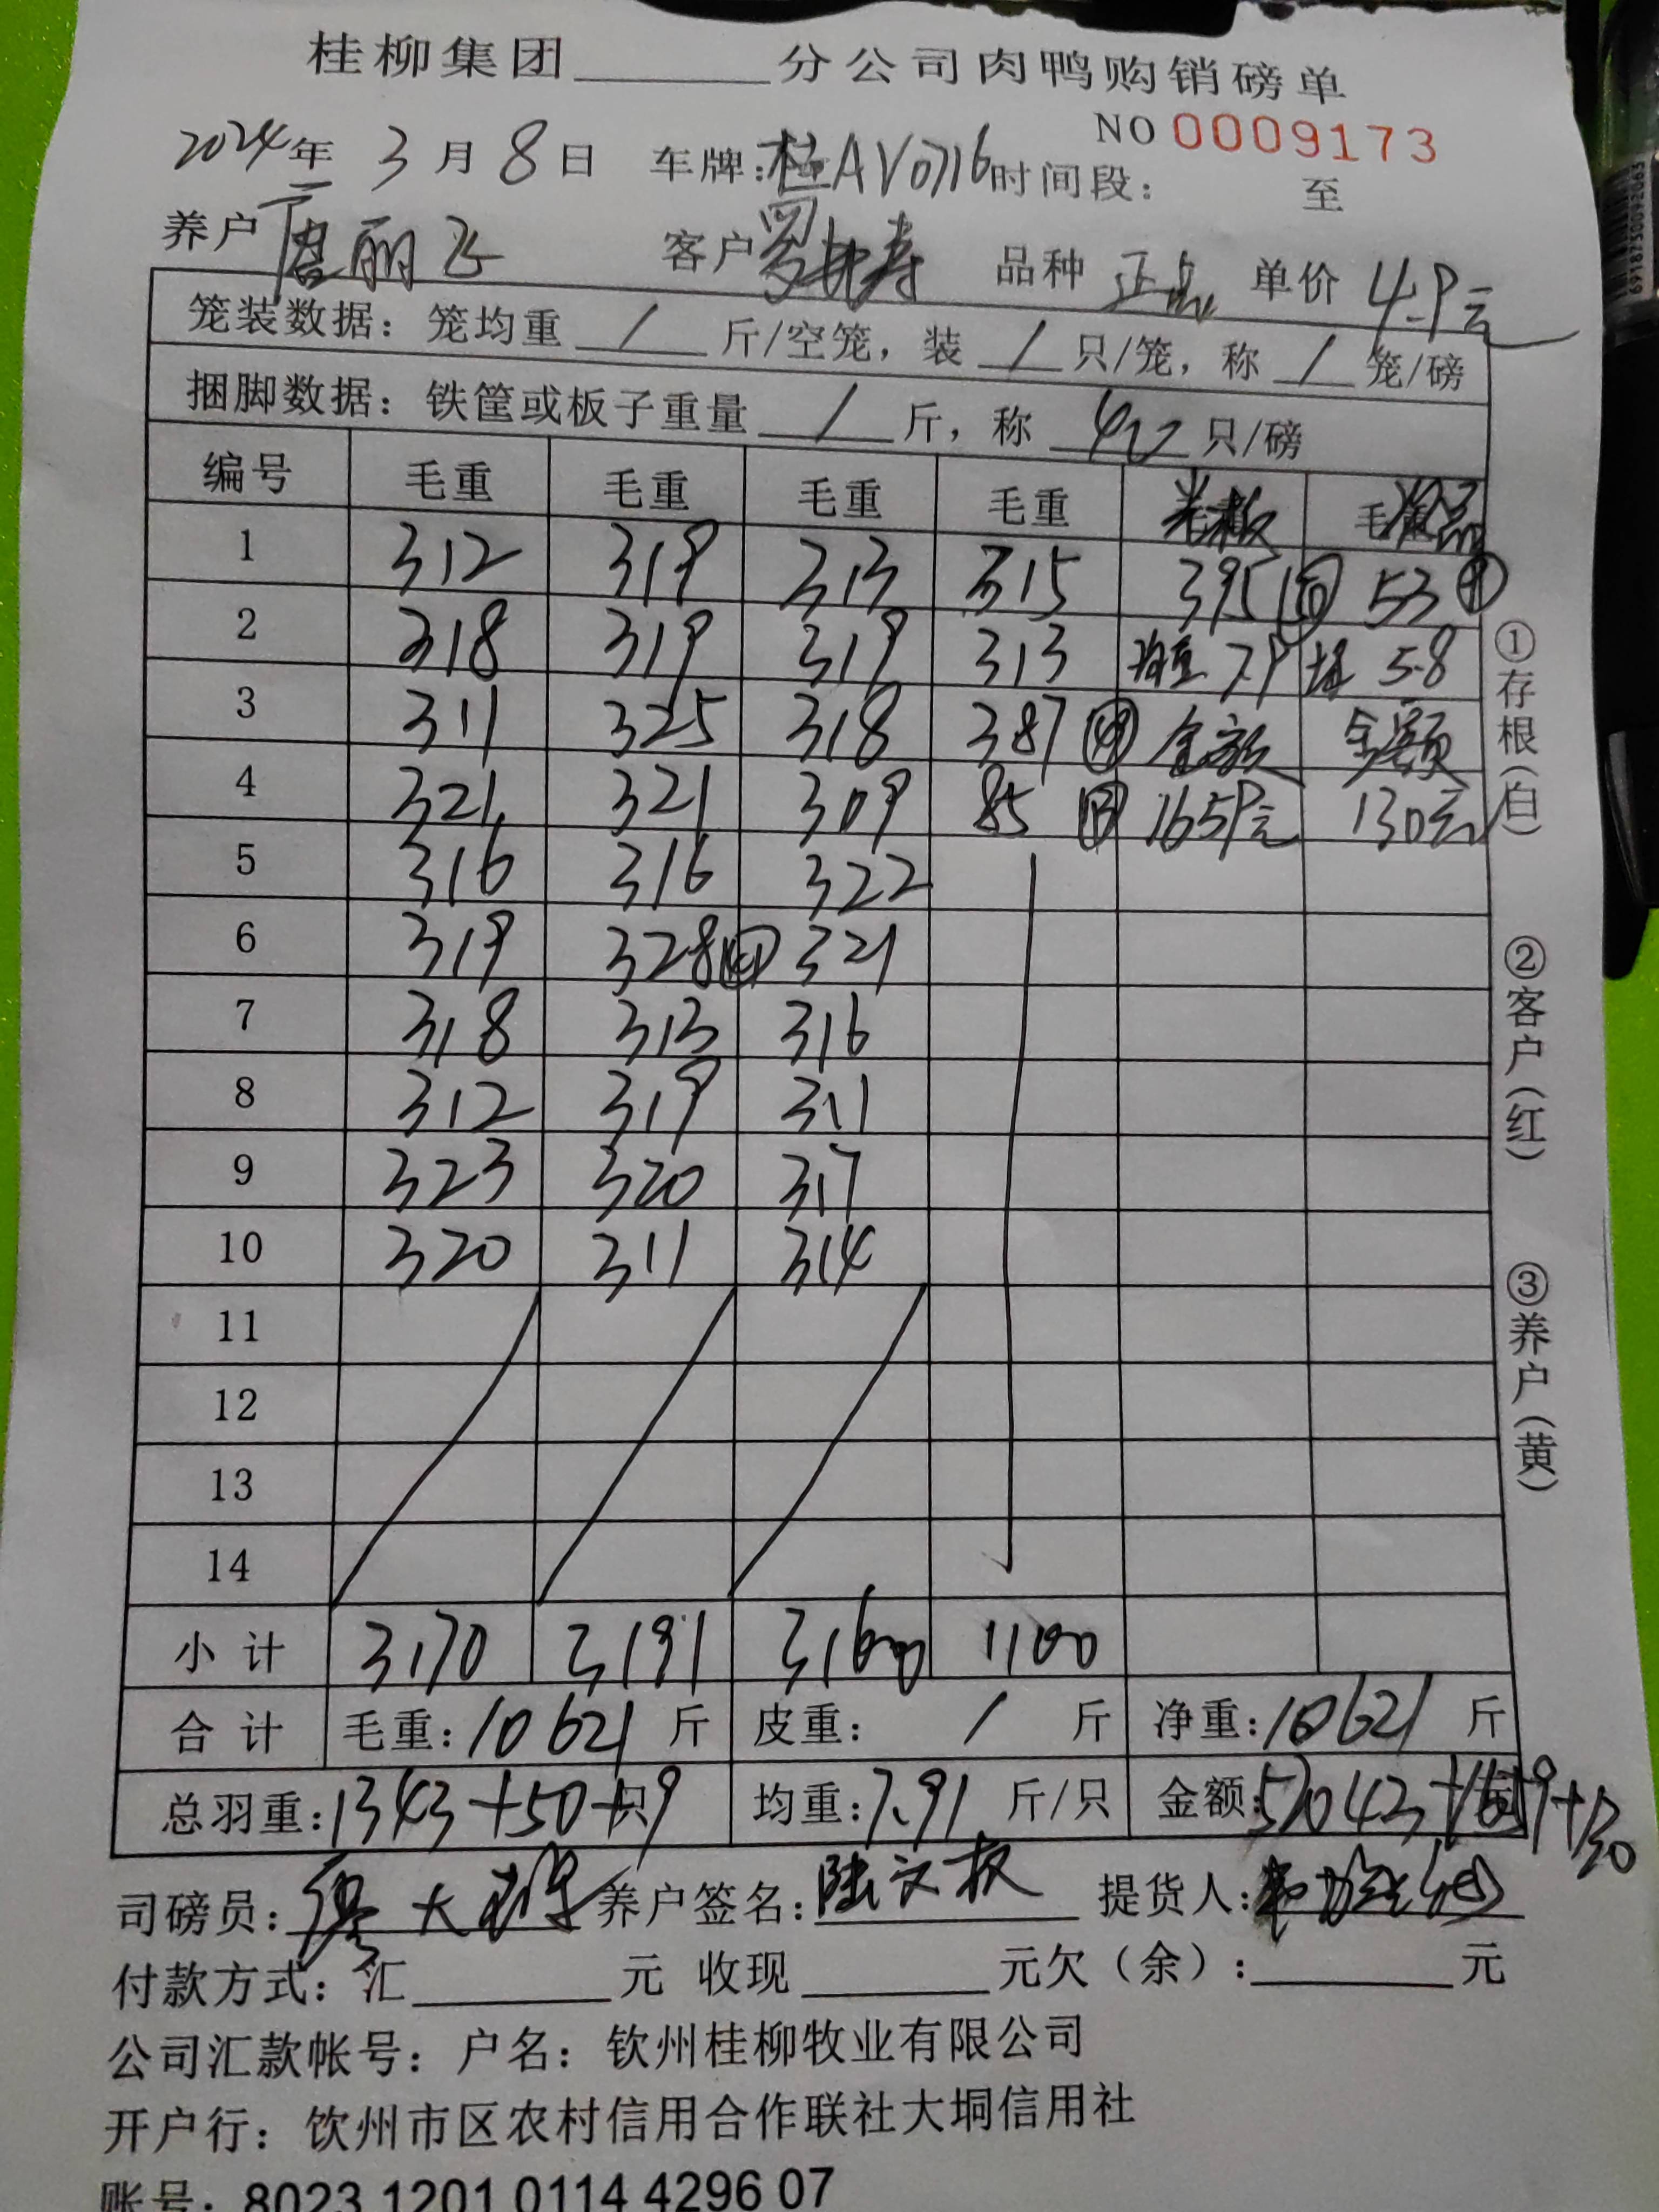 桂柳集团________分公司肉鸭购销磅单
NO 0009173
2024年 3月8日 车牌:桂AV0716 时间段: 至
养户 唐丽飞 客户 罗 寿 品种 正品 单价 4.9元
笼装数据: 笼均重 / 斤/空笼, 装 / 只/笼, 称 / 笼/磅
捆脚数据: 铁筐或板子重量 / 斤, 称 40 只/磅
编号 毛重 毛重 毛重 毛重 毛重
1 312 319 313 315 395 53 ⑨
2 318 319 319 313 均重 7.9 均重 5.8
3 311 325 318 387 金额 金额
4 321 321 309 85 1659元 130元
5 316 316 322
6 319 328 321
7 318 313 316
8 312 319 311
9 323 320 317
10 320 311 314
11
12
13
14
小计 3170 3191 3160 1100
合计 毛重:10621 斤 皮重: / 斤 净重:10621 斤
总羽重:1343+50+9 只 均重:7.91 斤/只 金额:52043+1659+130
司磅员: 大 养户签名:陆文权 提货人:
付款方式: 汇______元 收现______元欠(余):______元
公司汇款帐号: 户名: 钦州桂柳牧业有限公司
开户行: 钦州市区农村信用合作联社大垌信用社
账号: 8023 1201 0114 4296 07
①存根(白)
②客户(红)
③养户(黄)
6918730092063